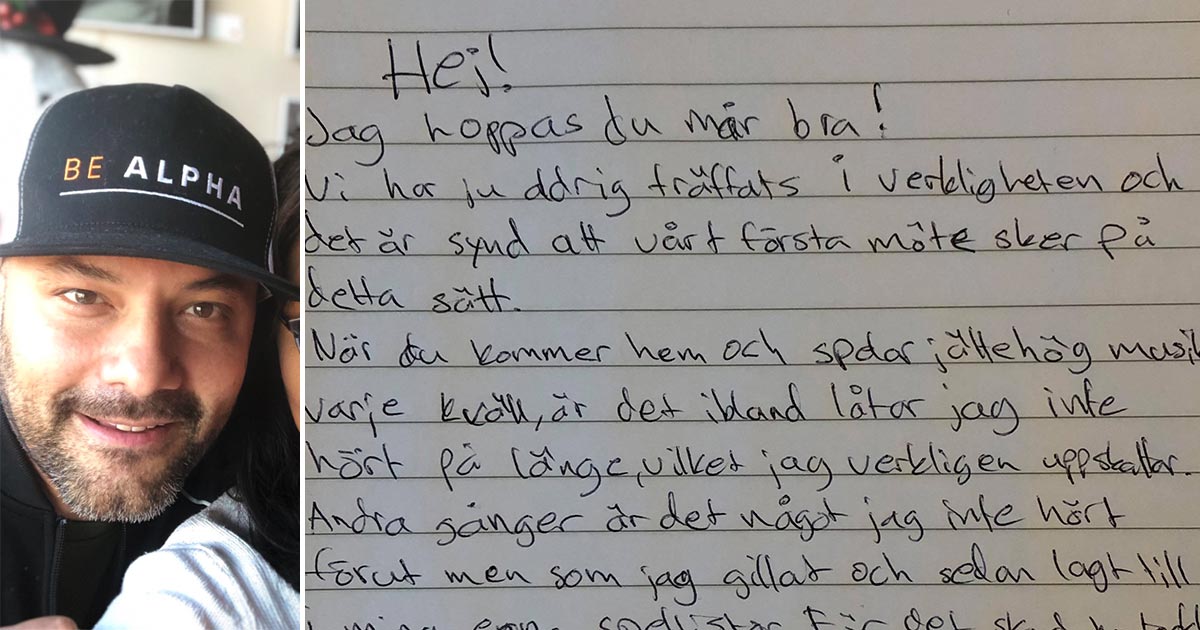 BE ALPHA
Hej!
Jag hoppas du mår bra!
Vi har ju aldrig träffats i verkligheten och
det är synd att vårt första möte sker på
detta sätt.
När du kommer hem och spelar jättehög musik
varje kväll, är det ibland låtar jag inte
hört på länge, vilket jag verkligen uppskattar.
Andra gånger är det något jag inte hört
förut men som jag gillat och sedan lagt till
i mina egna spellistor. För det ska du ha